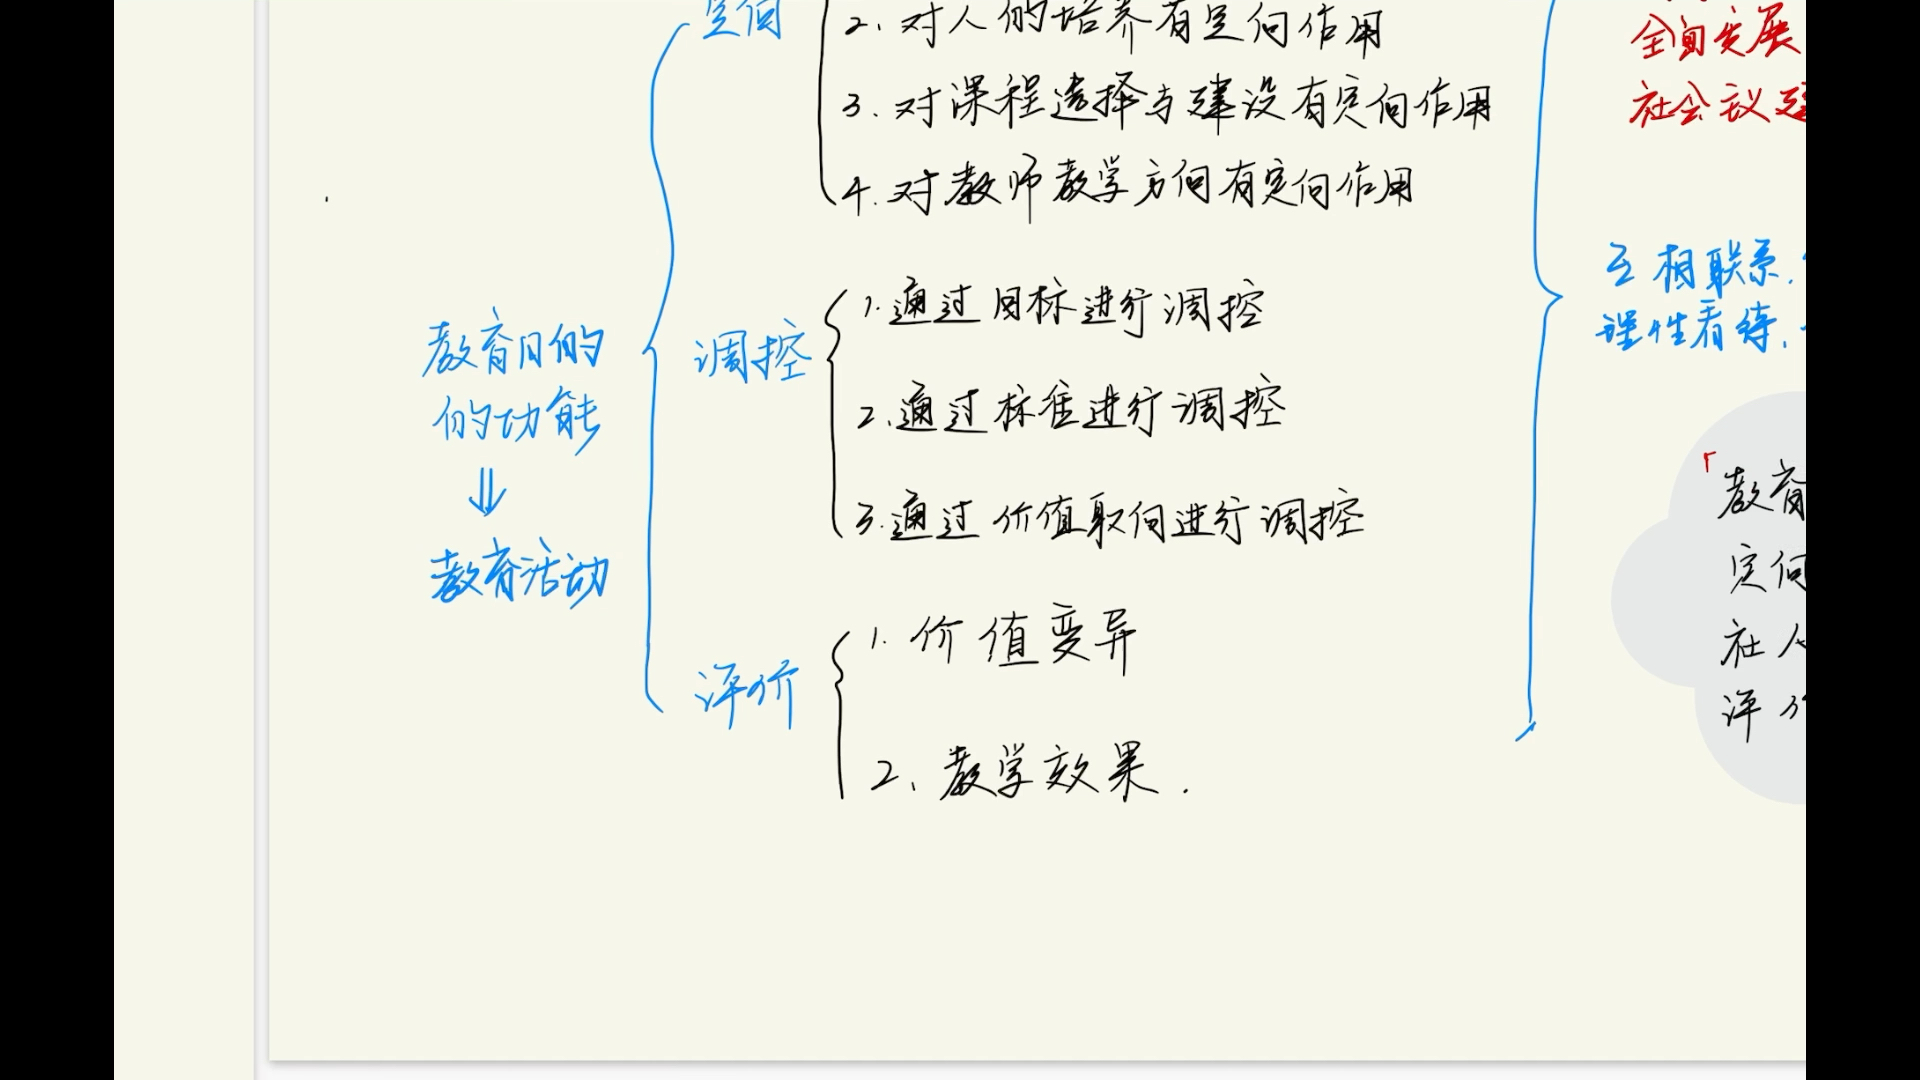 定向
2. 对人的培养有定向作用
3. 对课程选择与建设有定向作用
4. 对教师教学方向有定向作用
教育目的
的功能
⇓
教育活动
调控
1. 通过目标进行调控
2. 通过标准进行调控
3. 通过价值取向进行调控
评价
1. 价值变异
2. 教学效果.
全面发展
社会主义建
互相联系.
理性看待.
「教育
定向
社人
评价